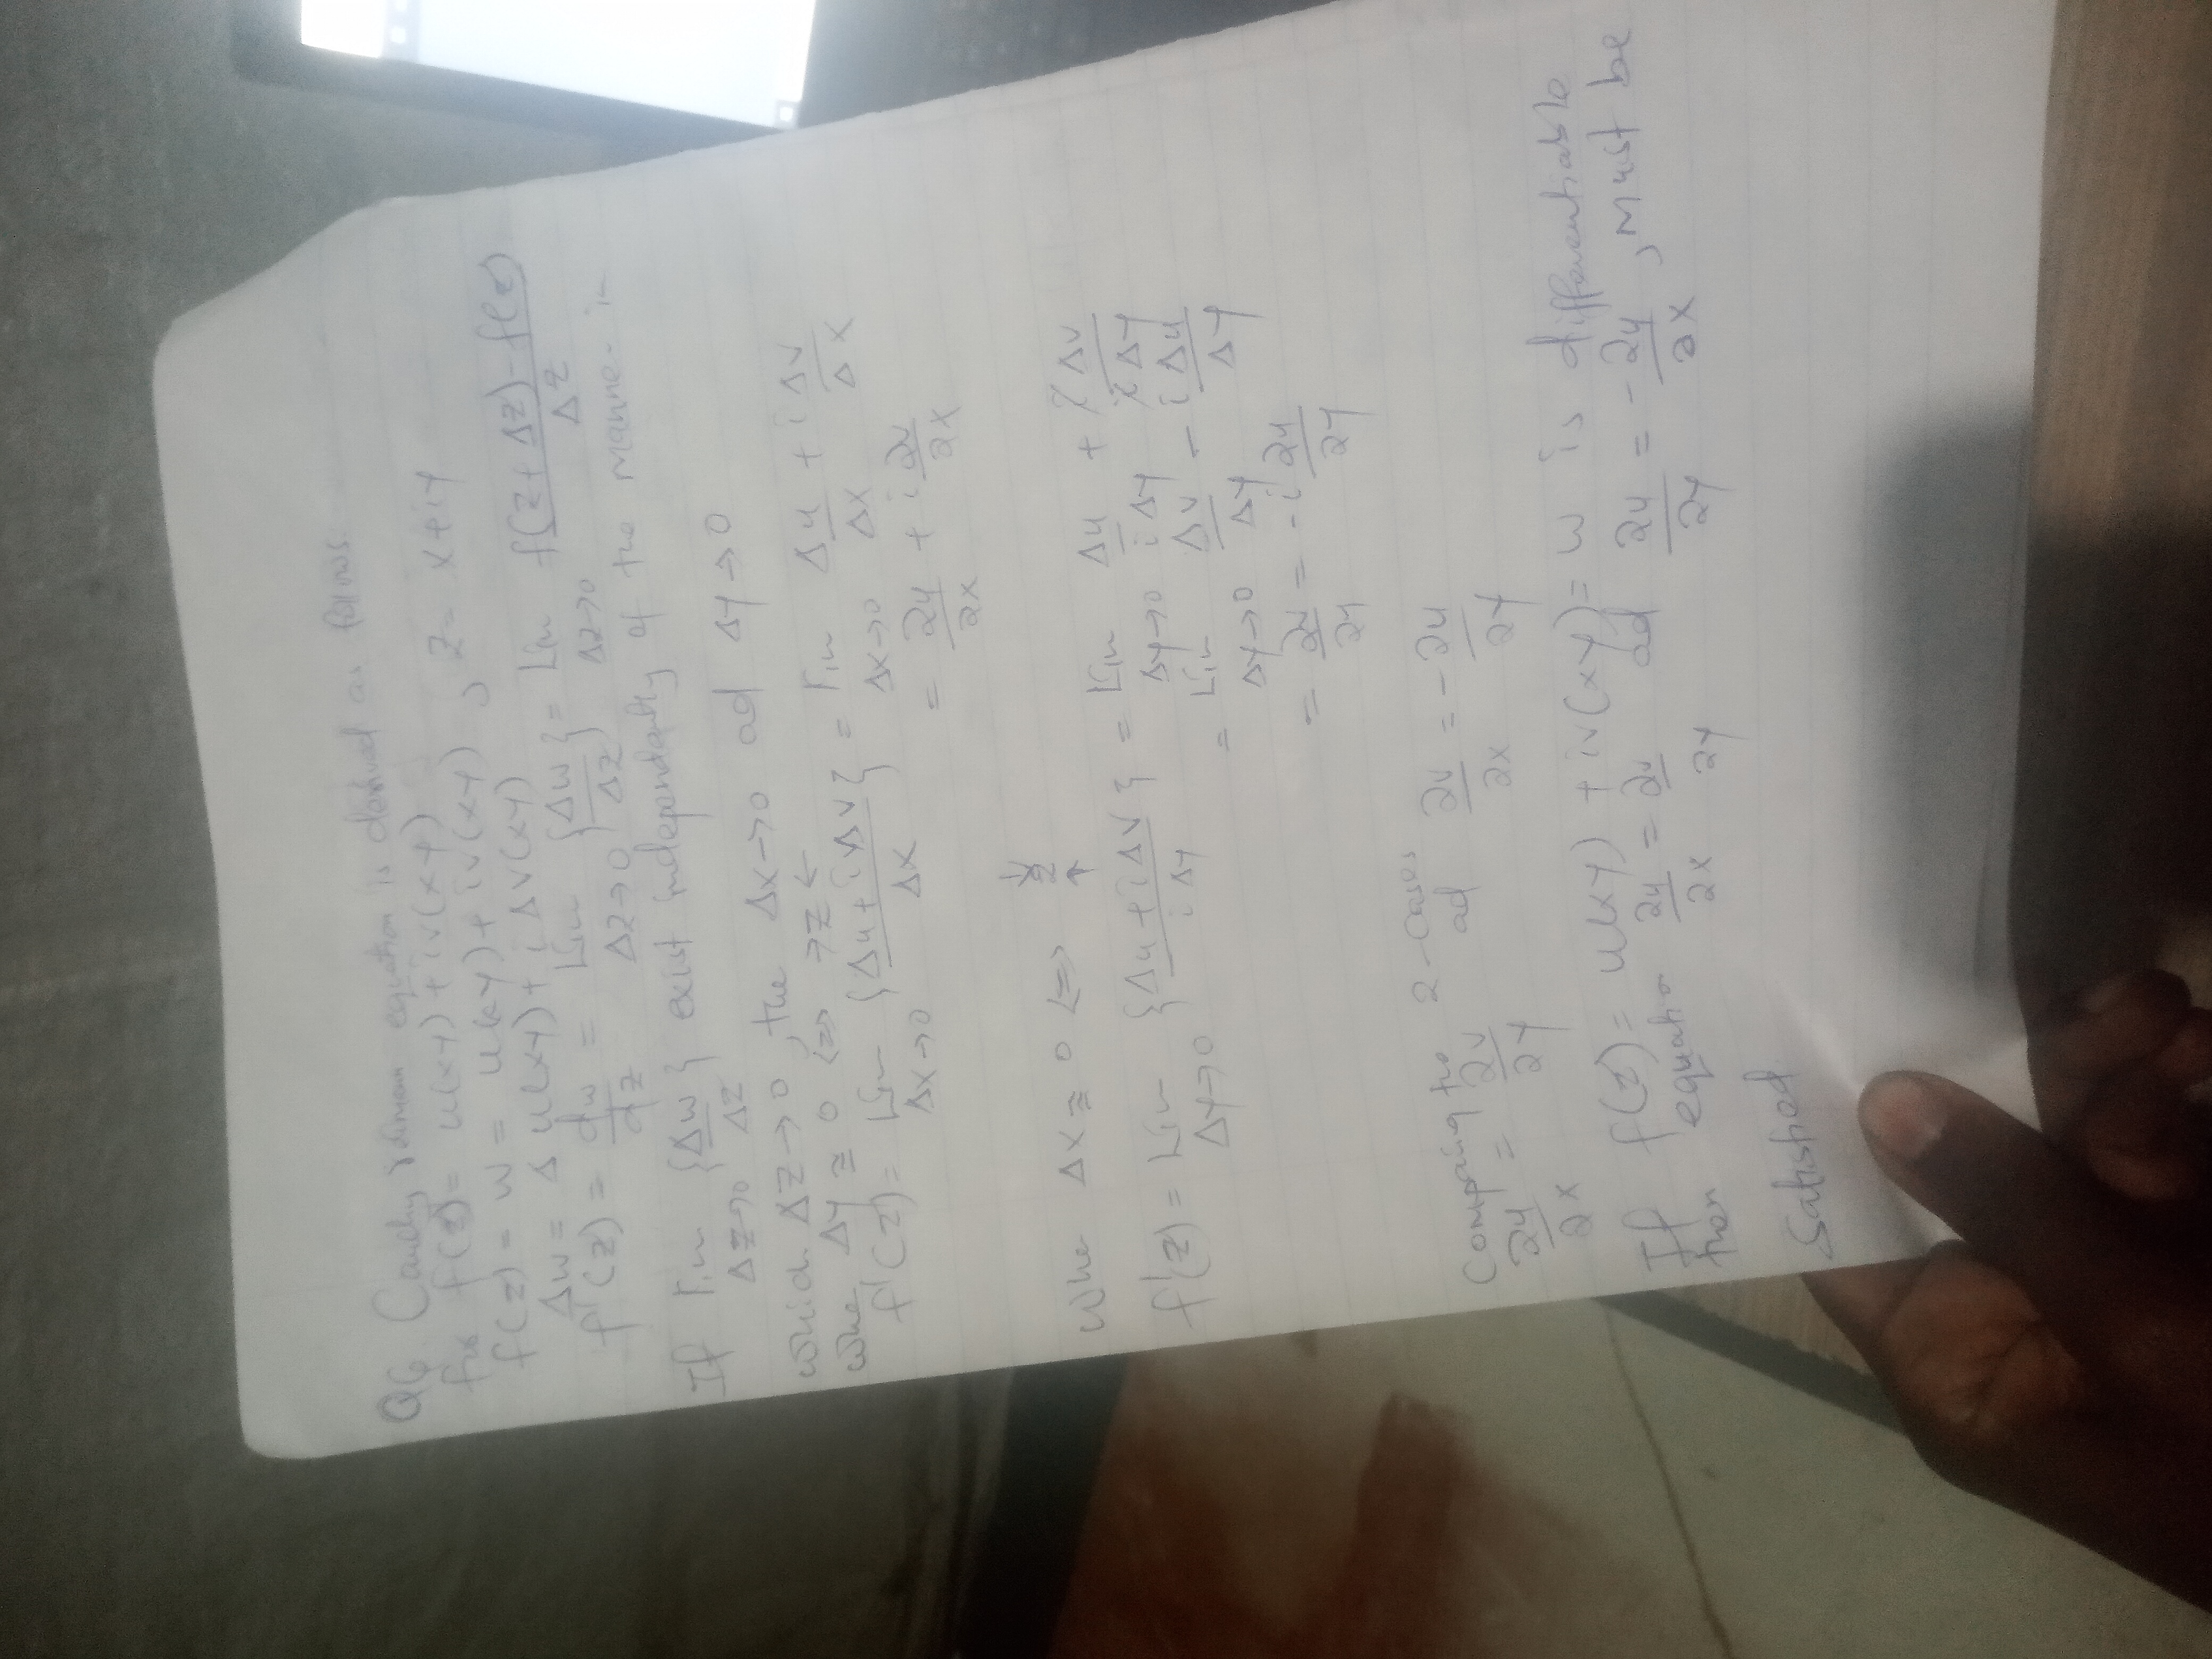 Q6. Cauchy Riemann equation is derived as follows.
for f(z) = u(xy) + iv(xy)
f(z) = w = u(xy) + iv(xy) , z = x+iy
Δw = Δu(xy) + iΔv(xy)
f'(z) = dw/dz = Lim Δz→0 {Δw/Δz} = Lim Δz→0 f(z+Δz)-f(z)/Δz
If Lim Δz→0 {Δw/Δz} exist independently of the manner in
which Δz→0, the Δx→0 ad Δy→0
Whe, Δy ≅ 0 <=> →z←
f'(z) = Lim Δx→0 {Δu+iΔv/Δx} = Lim Δx→0 Δu/Δx + iΔv/Δx
= ∂u/∂x + i∂v/∂x
Whe Δx ≅ 0 <=> ↓z↑
f'(z) = Lim Δy→0 {Δu+iΔv/iΔy} = Lim Δy→0 Δu/iΔy + iΔv/iΔy
= Lim Δy→0 Δv/Δy - iΔu/Δy
= ∂v/∂y = -i∂u/∂y
Comparing the 2-cases
∂u/∂x = ∂v/∂y ad ∂v/∂x = -∂u/∂y
If f(z) = u(xy) + iv(xy) = w is differentiable
then equation ∂u/∂x = ∂v/∂y ad ∂u/∂y = -∂u/∂x, must be
Satisfied